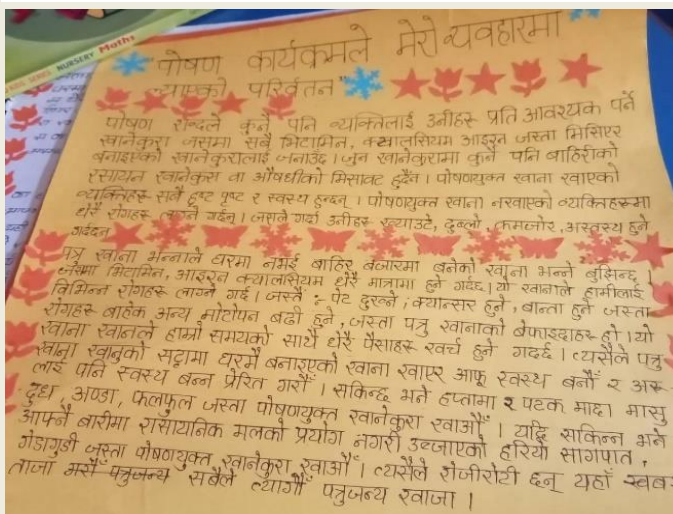 NURSERY Maths
"पोषण कार्यक्रमले मेरो व्यवहारमा
ल्याएको परिर्वतन"
पोषण शब्दले कुनै पनि व्यक्तिलाई उनीहरु प्रति आवश्यक पर्ने
खानेकुरा जसमा सबै भिटामिन, क्यालसियम आइरन जस्ता मिसिएर
बनाइएको खानेकुरालाई जनाउँछ। जुन खानेकुरामा कुनै पनि बाहिरीको
रसायन खानेकुरा वा औषधीको मिसावट हुदैन। पोषणयुक्त खाना खाएको
व्यक्तिहरु सबै हृष्ट पृष्ट र स्वस्थ हुन्छन्। पोषणयुक्त खाना नखाएको व्यक्तिहरुमा
धेरै रोगहरु लाग्ने गर्छन्। जसले गर्दा उनीहरु ख्याउटे, दुब्लो, कमजोर, अस्वस्थ हुने
गर्दछन
पत्रु खाना भन्नाले घरमा नभई बाहिर बजारमा बनेको खाना भन्ने बुझिन्छ।
जसमा भिटामिन, आइरन क्यालसियम धेरै मात्रामा हुने गर्दछ। यो खानाले हामीलाई
विभिन्न रोगहरु लाग्ने गर्छ। जस्तै :- पेट दुख्ने, क्यान्सर हुने, बान्ता हुने जस्ता
रोगहरु बाहेक अन्य मोटोपन बढी हुने, जस्ता पत्रु खानाको बेफाइदाहरु हो। यो
खाना खानाले हाम्रो समयको साथै धेरै पैसाहरु खर्च हुने गर्दछ। त्यसैले पत्रु
खाना खानुको सट्टामा घरमै बनाइएको खाना खाएर आफू स्वस्थ बनौँ र अरु
लाई पनि स्वस्थ बन्न प्रेरित गरौँ। सकिन्छ भने हप्तामा २ पटक माछा मासु
दुध, अण्डा, फलफुल जस्ता पोषणयुक्त खानेकुरा खाऔँ। यदि सकिन्न भने
आफ्नै बारीमा रासायनिक मलको प्रयोग नगरी उब्जाएको हरियो सागपात,
गेडागुडी जस्ता पोषणयुक्त खानेकुरा खाऔँ। त्यसैले रोजीरोटी छन् यहाँ
ताजा पत्रुजन्य सबैले त्यागौँ पत्रुजन्य खाजा।